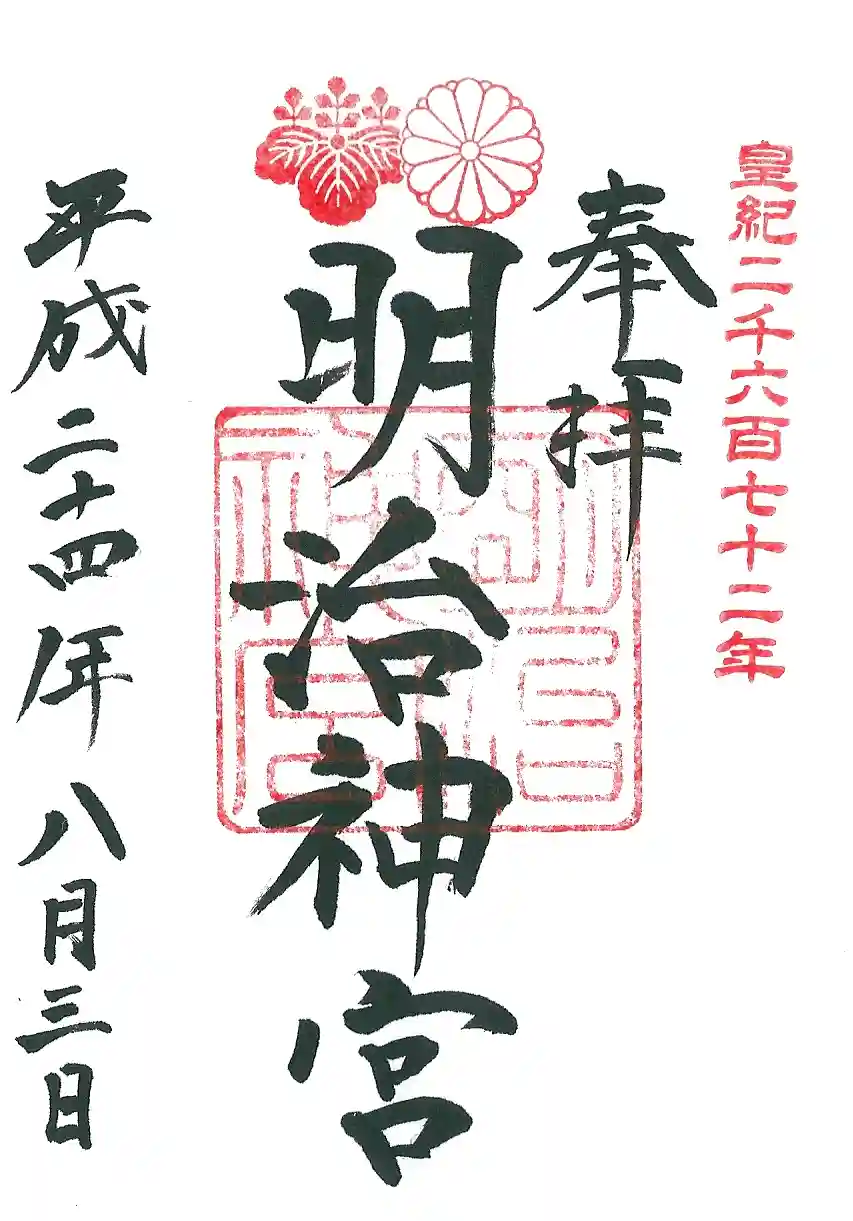 皇紀二千六百七十二年
奉拝
明治神宮
平成二十四年八月三日
明治神宮